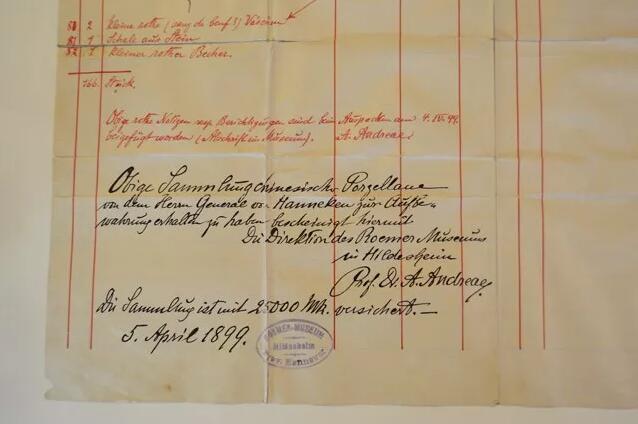 80 2 kleine rothe (sang de beuf?) Väschen
81 1 Schale aus Stein
82 1 kleiner rother Becher.
166. Stück.
Obige rothe Notizen resp. Berichtigungen sind beim Auspacken am 4. IV. 99.
beigefügt worden (Abschrift im Museum). A. Andreae
Obige Sammlung chinesische Porzellane
von dem Herrn General von Hanneken zur Aufbe-
wahrung erhalten zu haben bescheinigt hiermit
Die Direktion des Roemer Museums
in Hildesheim
Prof. Dr. A. Andreae.
Die Sammlung ist mit 25000 Mk. versichert.—
5. April 1899.
ROEMER-MUSEUM
Hildesheim
Prov. Hannover